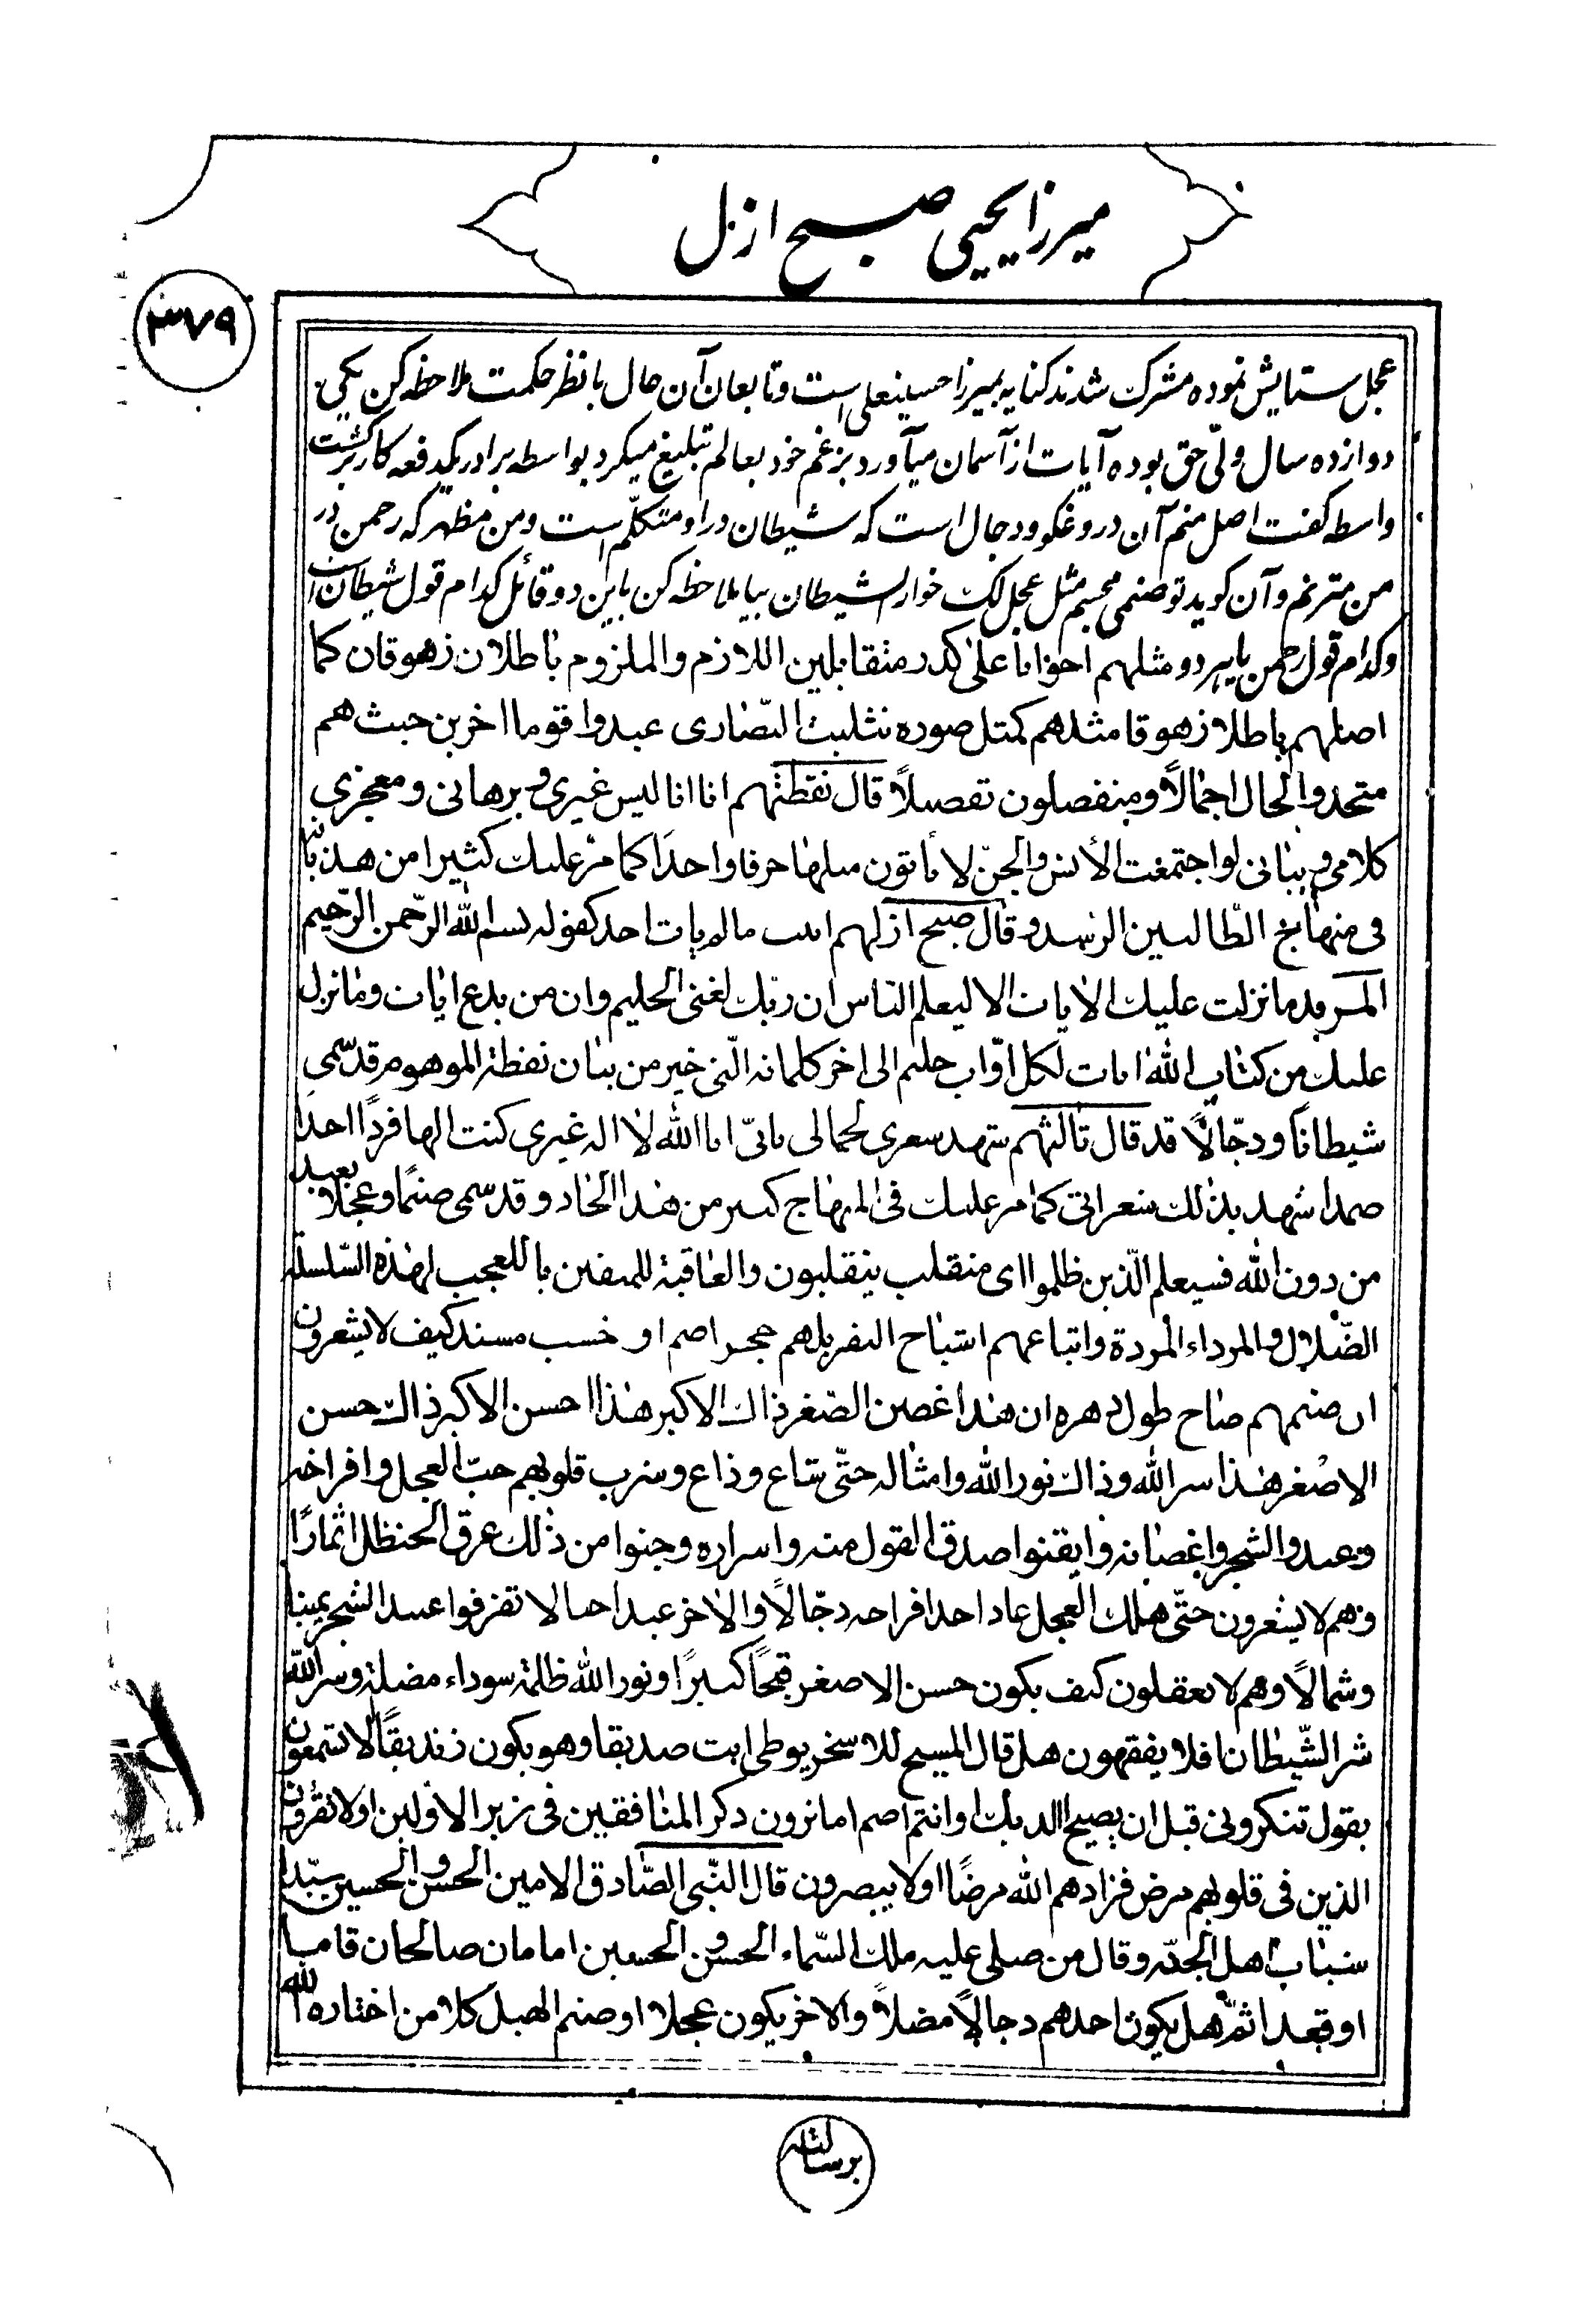 میرزا یحیی صبح ازل
۳۷۹
عجل ستایش نموده مشرک شدند کنایه بمیرزا حسینعلی است و تابعان آن حال با نظر حکمت ملاحظه کن یکی
دوازده سال ولّی حق بوده آیات از آسمان میآورد بزعم خود بعالم تبلیغ میکرد بواسطه برادر یکدفعه کار برگشت
واسطه کفت اصل منم آن دروغکو و دجال است که شیطان در او متکلّم است و من مظهر که رحمن در
من مترنم و آن کوید تو صنمی مجسم مثل عجل لک خوار الشیطان بیا ملاحظه کن باین دو قائل کدام قول شیطان
وکدام قول رحمن یا هر دو مثلهم علی کدر متقابلین اللازم والملزوم باطلان زهوقان کما
اصلهم باطلا زهوقا مثلهم کمثل صوره تثلیث النّصاری عبدوا قوما اخرین حیث هم
متحدوالحال اجمالاً ومنفصلون تفصیلاً قال نقطتهم انا انا لیس غیری و برهانی ومعجزی
کلامی و بیانی لو اجتمعت الأنس والجنّ لا یأتون مثلها حرفا واحدًا کما مرّ علیک کثیرا من
فی منهاج الطّالبین الرشد و قال صبح ازلهم مالم یات احد کقوله بسم الله الرّحمن الرّحیم
المر مانزلت علیک الایات الا لیعلم النّاس ان ربّک لغنی الحلیم وان من بدع ایات ومانزل
علیک من کتاب الله ایات لکل اوّاب حلیم الی اخر کلماته الّتی خیر من بیان نقطة الموهوم قد سمّی
شیطاناً و دجّالاً قد قال ثالثهم شهد شعری لجمالی بانّی انا الله لا اله غیری کنت الها فردًا احدًا
صمدا شهد بذلک شعراتی کما مر علیک فی المنهاج کثیر من هذا الحاد و قد سمی صنمًا وعجلًا یعبد
من دون الله فسیعلم الّذین ظلموا ای منقلب ینقلبون والعاقبة للمتقین یا للعجب لهذه السّلسلة
الضّلال والمرداء المردة واتباعهم اشباح البقر بل هم حجر اصم او خسب مسند کیف لایشعرون
ان صنمهم صاح طول دهره ان هذا غصن الصّغر ذاک الاکبر هذا احسن الاکبر ذاک حسن
الاصغر هذا سر الله وذاک نور الله وامثاله حتّی شاع وذاع وشرب قلوبهم حبّ العجل وافراخه
وعبدوالشجر واغصانه وایقنوا صدق القول منه واسراره وجنوا من ذلک عرق الحنظل اثمارًا
وهم لایشعرون حتّی هلک العجل عاد احد افراخه دجّالاً والاخر عبدا تفرقوا عبید الشجر یمینا
وشمالاً وهم لا یعقلون کیف یکون حسن الاصغر قبحًا کبیرًا و نور الله ظلمة سوداء مضلة وسر الله
شر الشّیطان افلا یفقهون هل قال المسیح للاسخریوطی انت صدیقا وهو یکون زندیقاً الاتستمعون
بقول تنکرونی قبل ان یصیح الدیک او انتم اصم اماترون ذکر المنافقین فی زبر الاوّلین اولا تقرؤن
الذین فی قلوبهم مرض فزادهم الله مرضًا اولا یبصرون قال النّبی الصّادق الامین الحسن والحسین سیّدا
شباب اهل الجنّه وقال من صلی علیه ملک السّماء الحسن والحسین امامان صالحان قاما
او قعدا ثمّ هل یکون احدهم دجالاً مضلاً والاخر یکون عجلا او صنم الهبل کلا من اختاره الله
برسالته